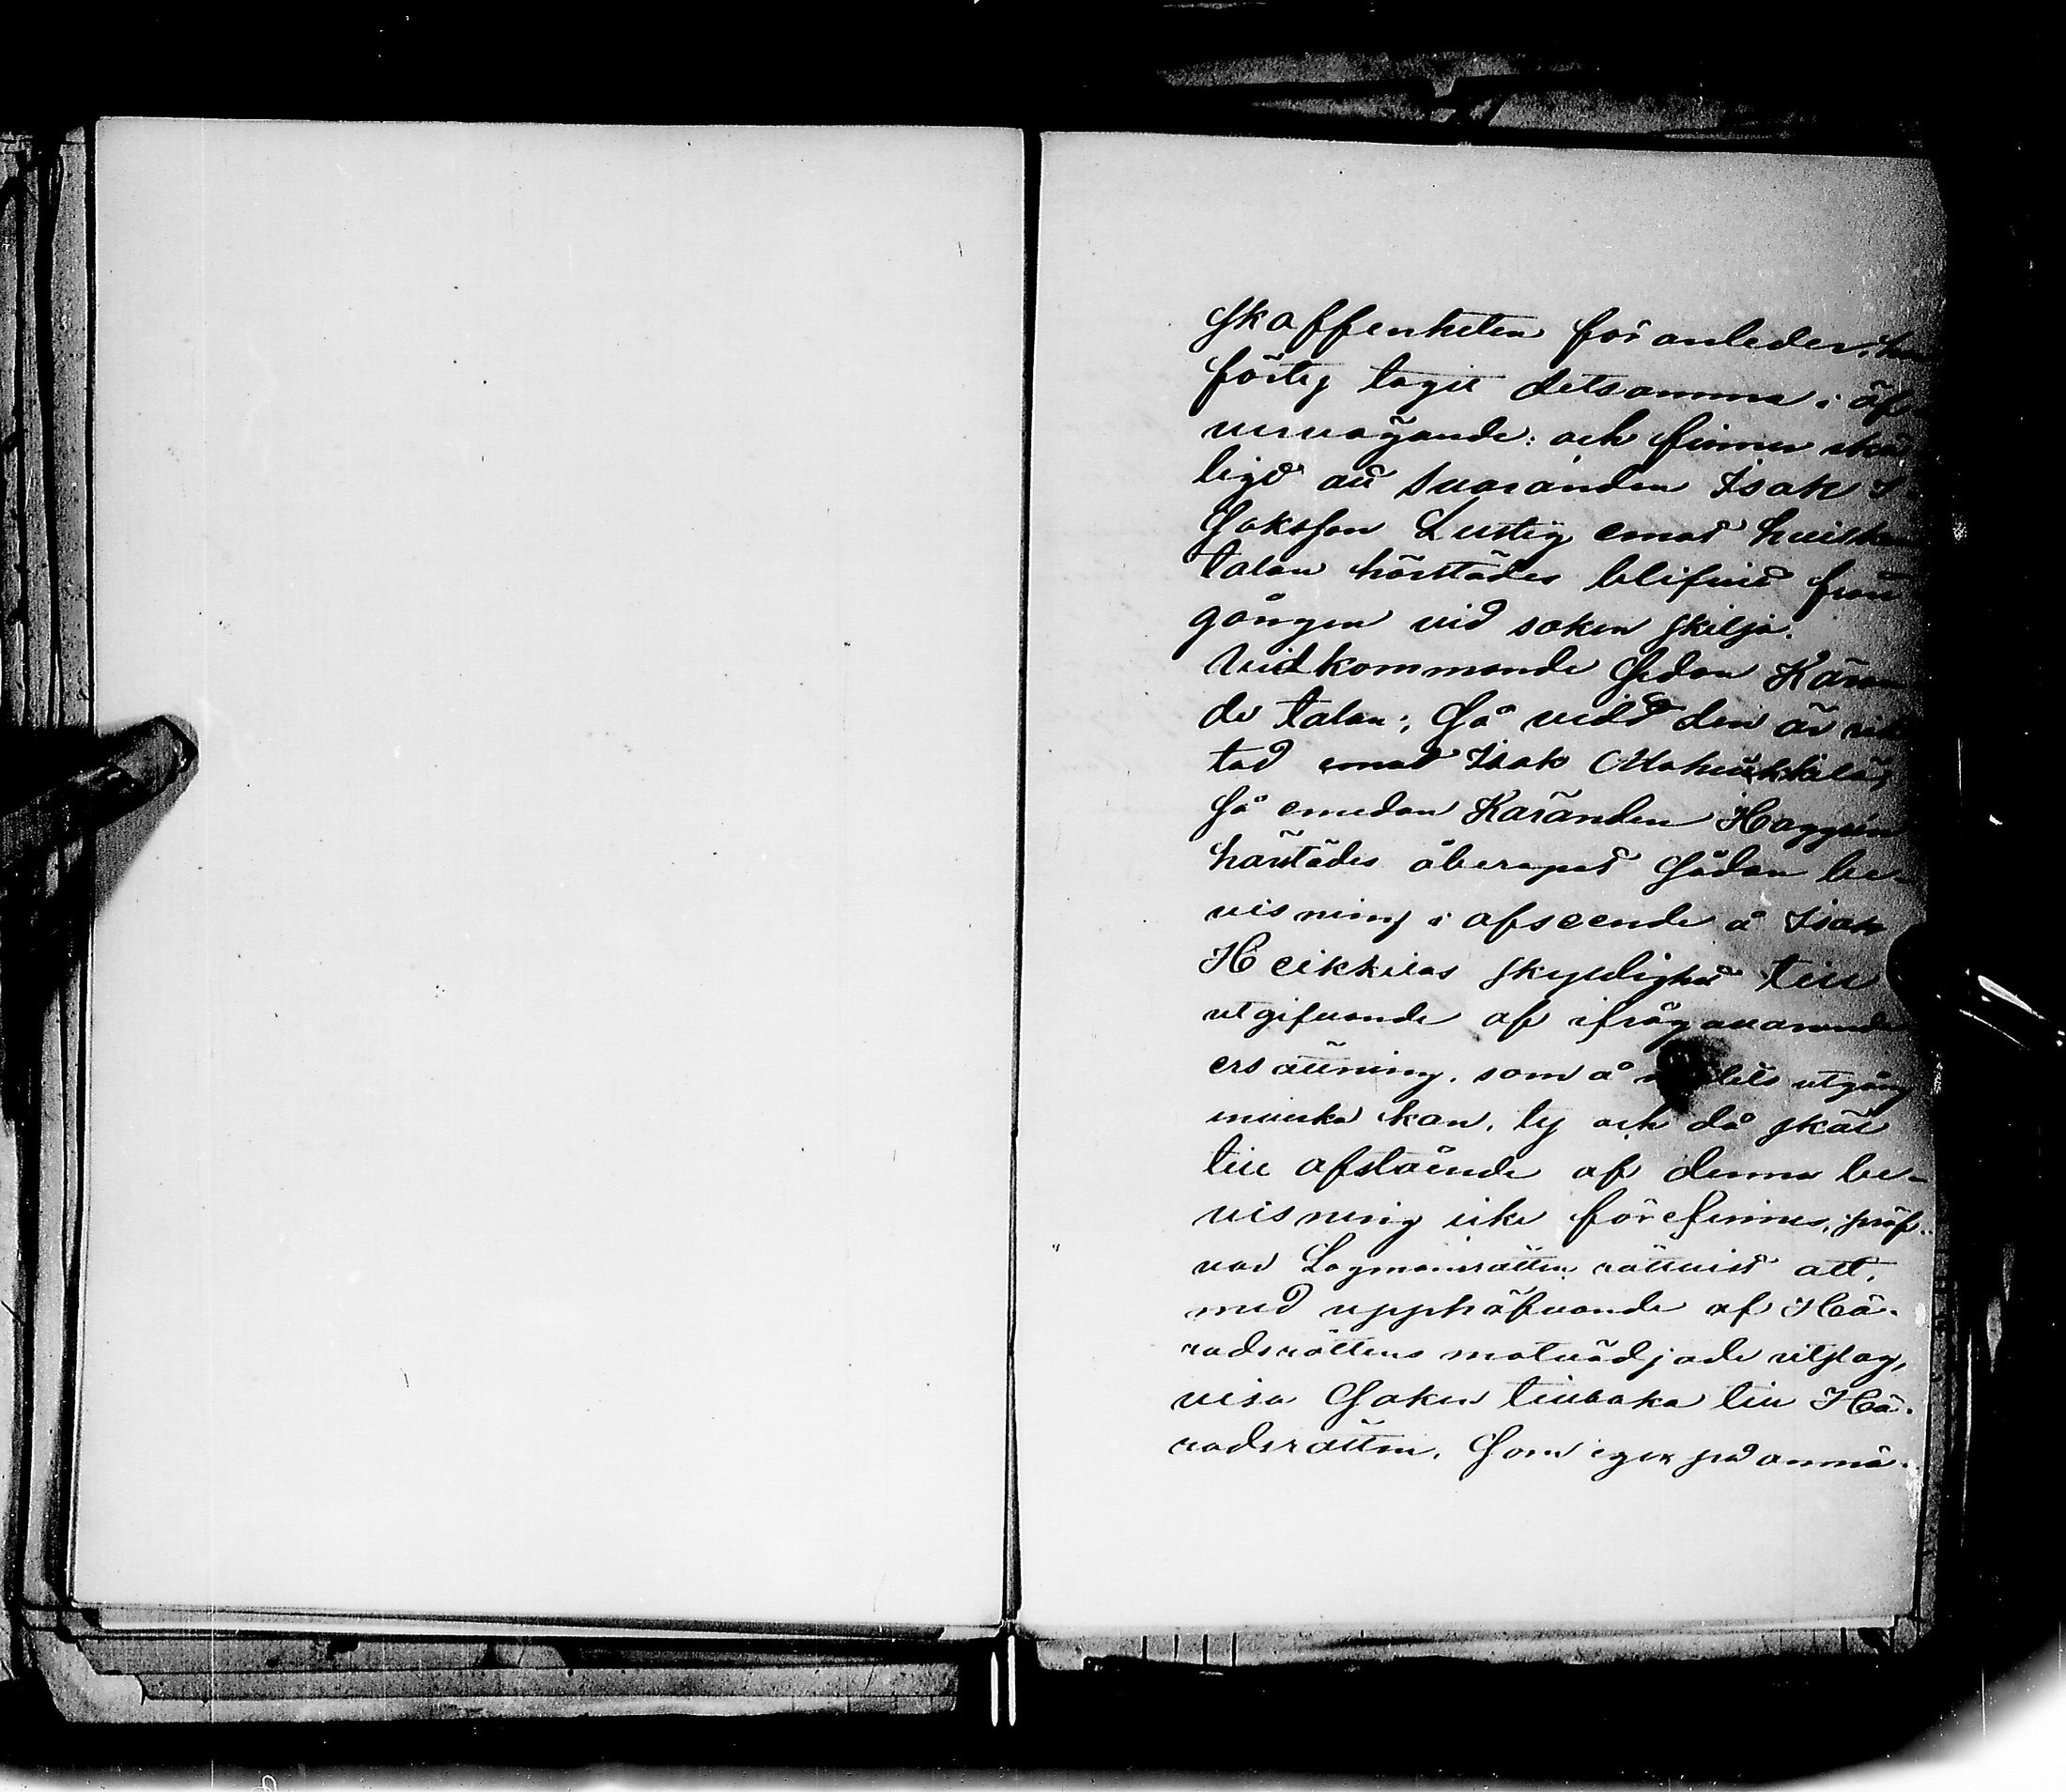 skaffenheten föranleder,
förty tagit detsamma i öf
vervägande: och finner skä
ligt att Svaranden Isak I
saksson Lustig emot hvilken
talan härstädes blifvit från
gången vid saken skilja.
Vidkommande sedan Käran
de talan; så vidt den är rik
tad emot Isak
så emedan Käranden Haggrén
härstädes åberopat sådan be-
visning i afseende å Isak
Heikkiläs skyldighet till
utgifvande af ifrågavarande
ersättning, som å utgång
inverka kan, ty och då skäl
till afslående af denna be-
visning icke förefinnes, pröf-
var Lagmansrätten rättvist att,
med upphäfvande af Hä-
radsrättens motvädjade utslag,
visa Saken tillbaka till Hä-
radsrätten, Som eger på anmä-